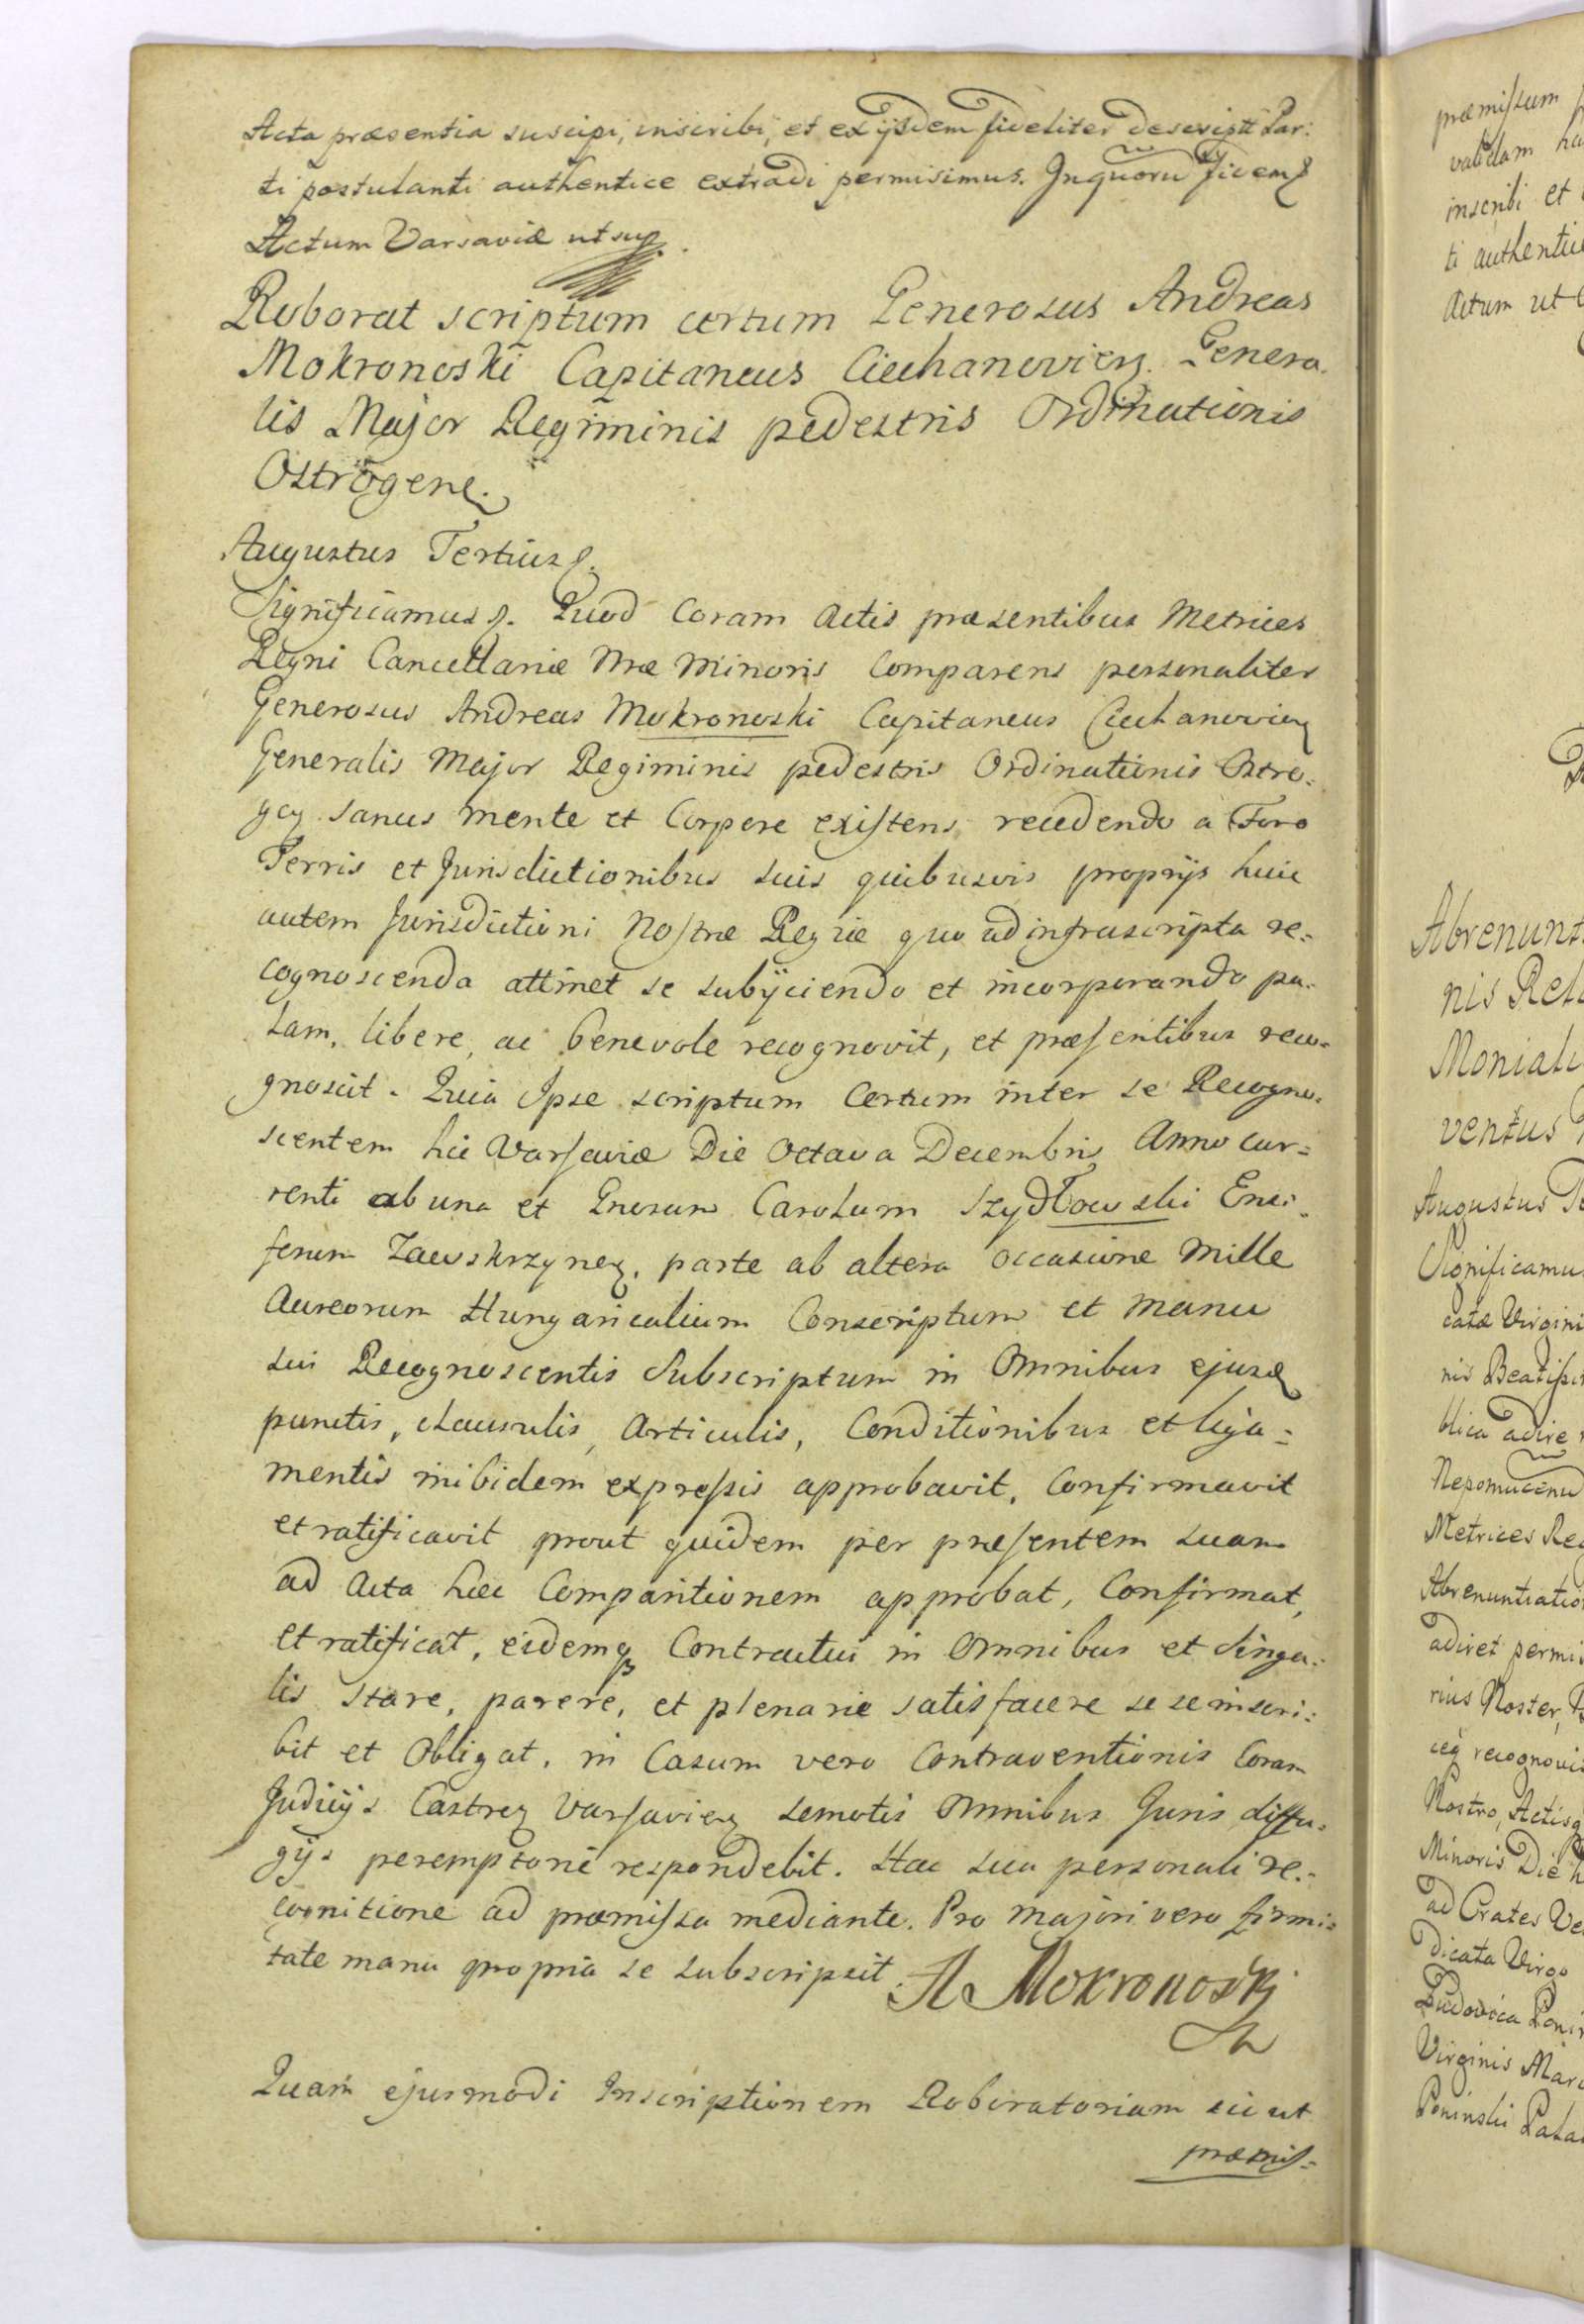 Acta præsentia suscipi, inscribi, et ex ijsdem fideliter descriptt Par:
ti postulanti authentice extradi permisimus. Inquorũ fidem
Actum Varsaviæ ut sup.
Roborat scriptum certum Generosus Andreas
Mokronoski Capitaneus Ciechanovien. Genera.
lis Major Regiminis pedestris Ordinationis
Ostrogene.
Augustus Tertius
Significamus. Quod Coram Actis præsentibus Metrices
Regni Cancellariæ Nræ Minoris Comparens personaliter
Generosus Andreas Mokronoski Capitaneus Ciechanovien
Generalis Major Regiminis pedestris Ordinationis Ostro:
gen sanus mente et Corpore existens, recedendo a Foro
Terris et Jurisdictionibus suis quibusvis proprijs huic
autem Jurisdictioni Nostræ Regiæ quo ad infrascripta re:
cognoscenda attinet se subijciendo et incorporando pa:
lam, libere, ac benevole recognovit, et præsentibus reco:
gnoscit. Quia Ipse scriptum Certum inter se Recogno:
scentem hic Varsaviæ Die Octava Decembris Anno cur:
renti ab una et Gnosum Carolum Szydłowski Ensi:
ferum Zawskrzynen. parte ab altera occasione Mille
Aureorum Hungaricalium Conscriptum et manu
sui Recognoscentis Subscriptum in Omnibus ejusd
punctis, clausulis, Articulis, Conditionibus et liga:
mentis inibidem expressis approbavit, Confirmavit
et ratificavit prout quidem per præsentem suam
ad Acta hæc Comparitionem approbat, Confirmat,
et ratificat, eidemq Contractui in Omnibus et Singu:
lis stare, parere, et plenarie satisfacere se se inscri:
bit et Obligat, in Casum vero Contraventionis Coram
Judicijs Castren Varsavien semotis Omnibus Juris diffu:
gijs peremptorie respondebit. Hac sua personali re:
cognitione ad præmissa mediante. Pro majori vero firmi:
tate manu propria se subscripsit. A Mokronoski
Quam ejusmodi Inscriptionem Roboratoriam sic ut
præmis:
præmissum
validam
inscribi et
ti authentice
Actum ut
Abrenunt
nis
Moniali
ventus
Augustus
Significamu
catæ Virgini
nis Beatiss
blica adire
Nepomucenũ
Metrices Reg
Abrenuntiatio
adiret permi
rius Noster,
recognovi
Nostro, Actisq
Minoris Die h
ad Crates Ve
dicata Virgo
Ludovica Ponin
Virginis Mar
Poninski Pala